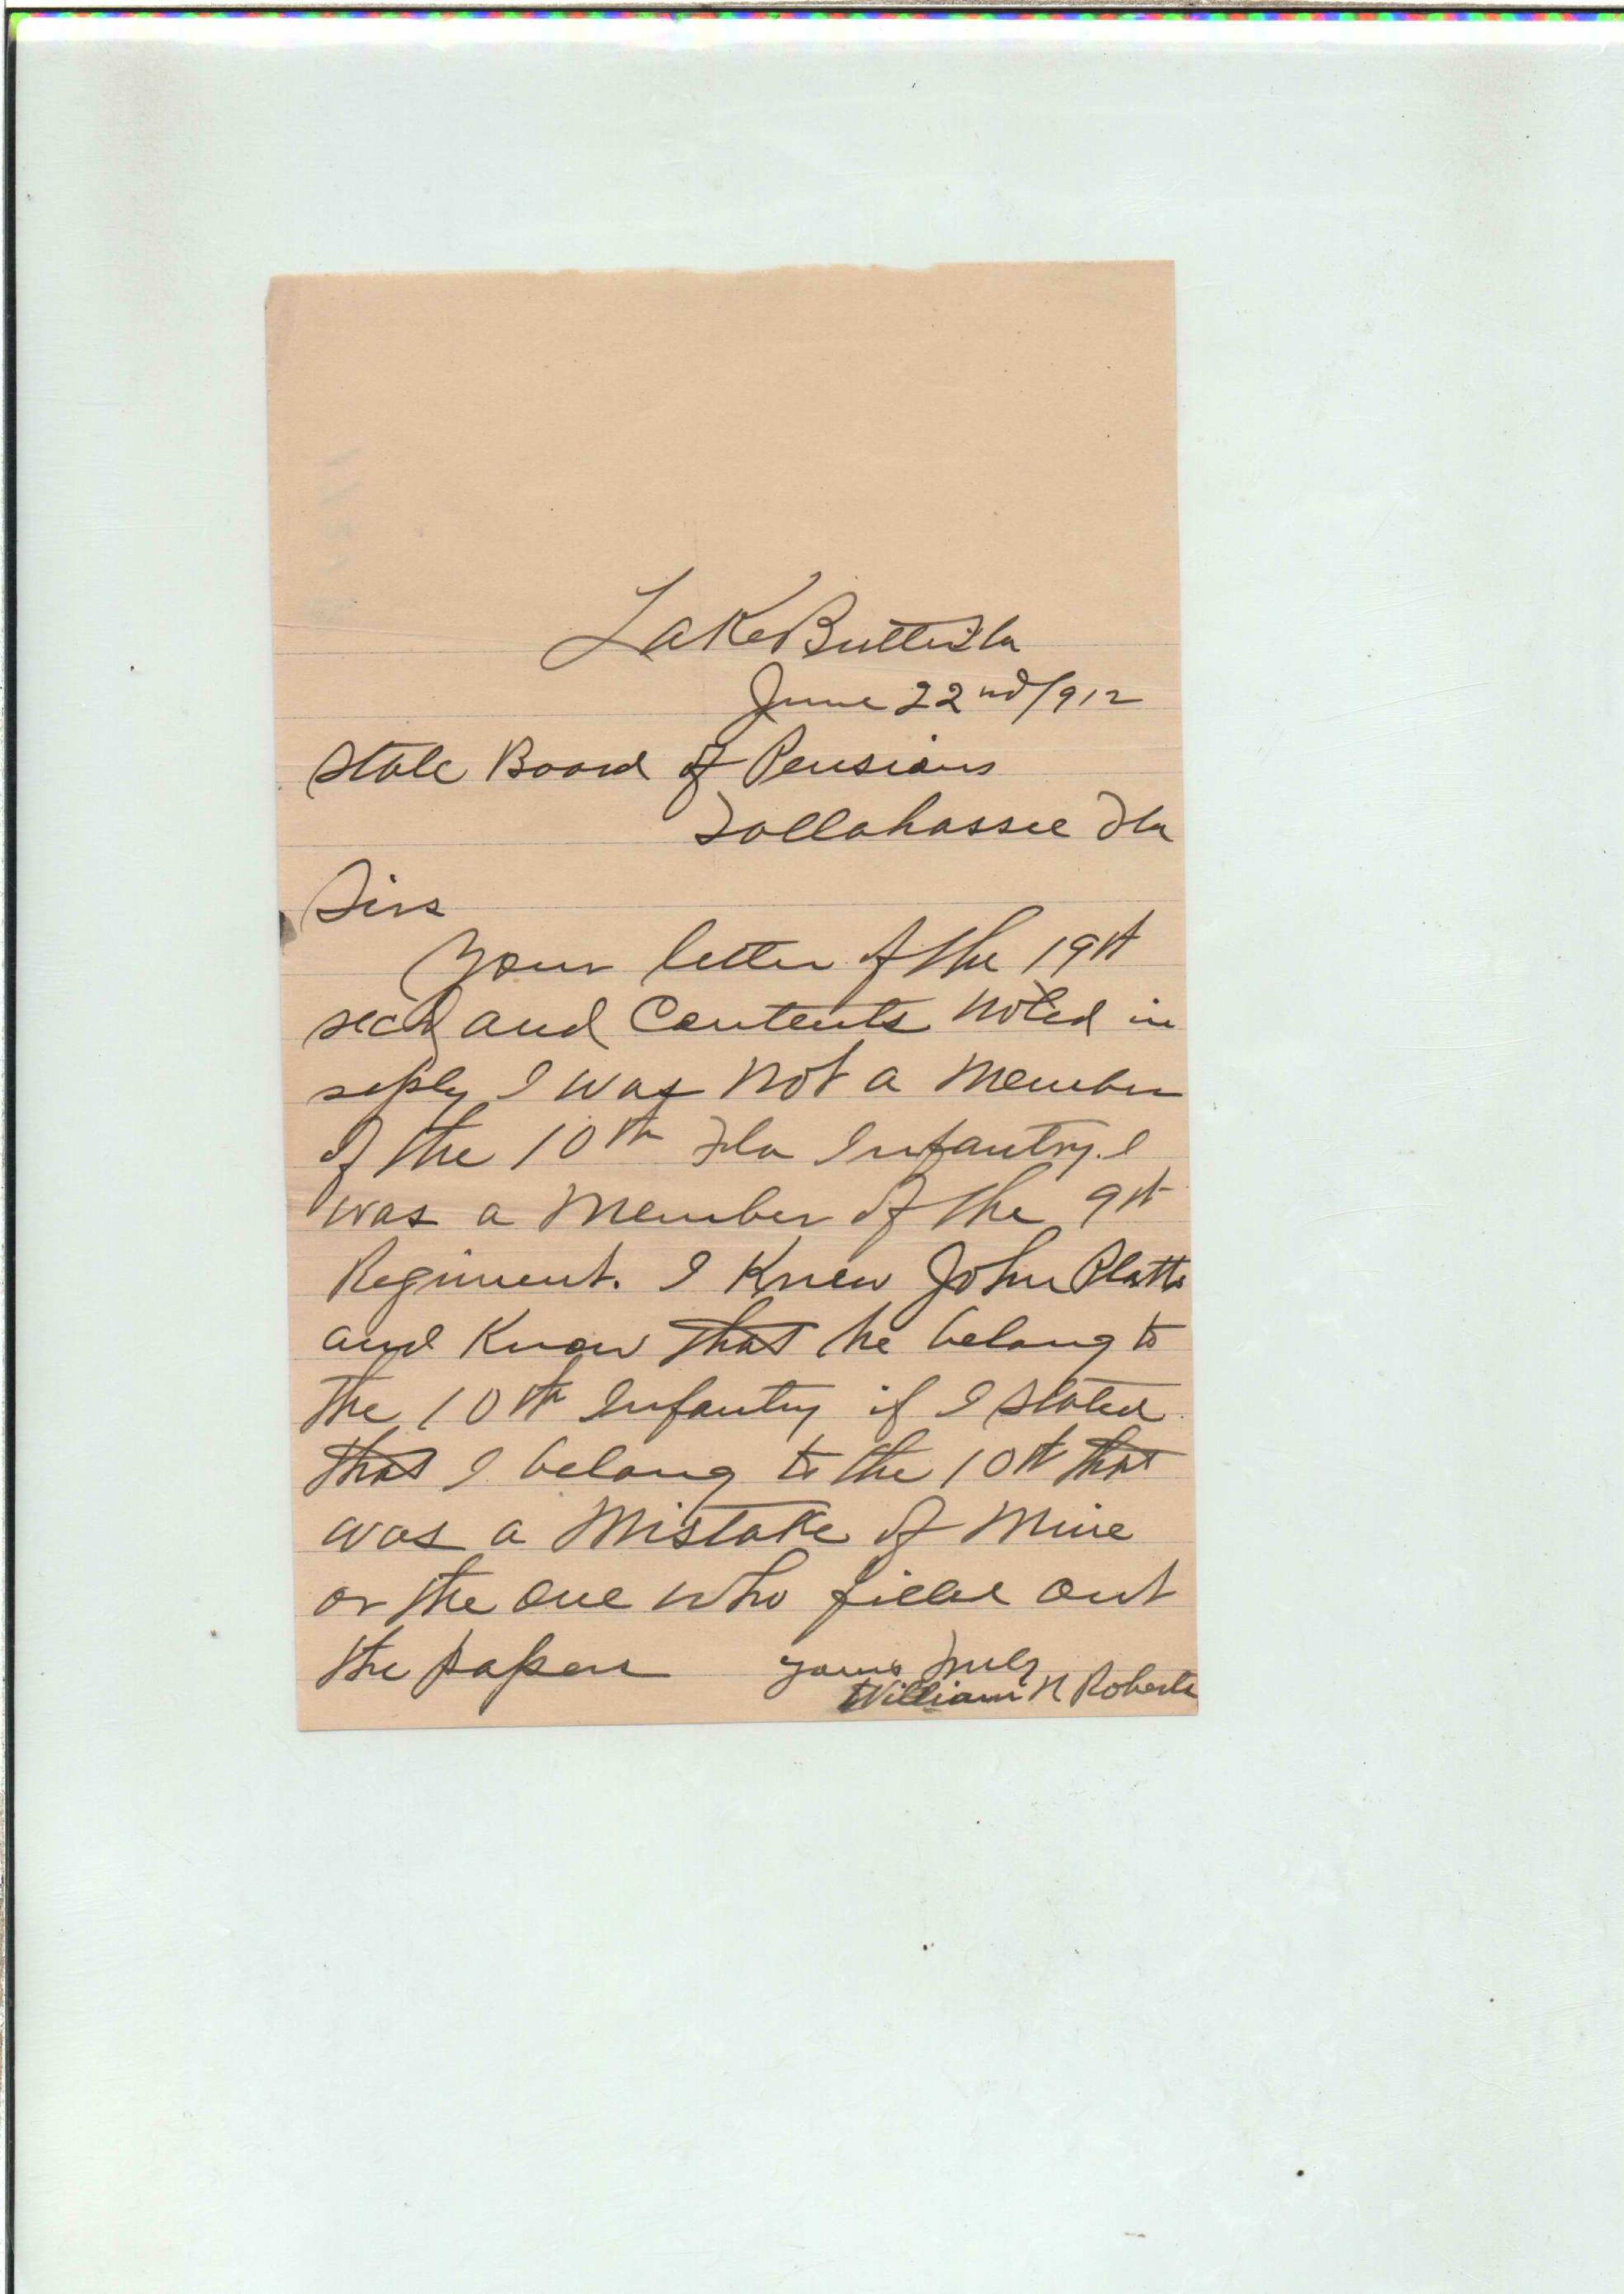 Lake Butler Fla
June 22nd/912
State Board of Pensions
Tallahassee Fla
Sirs
Your letter of the 19th
recd and Contents Noted in
reply I was Not a Member
of the 10th Fla Infantry. I
was a Member of the 9th
Regiment. I Knew John Platts
and Know that he belong to
the 10th Infantry if I stated
that I belong to the 10th that
was a Mistake of Mine
or the one who filled out
the paper yours Truly
William N Roberts